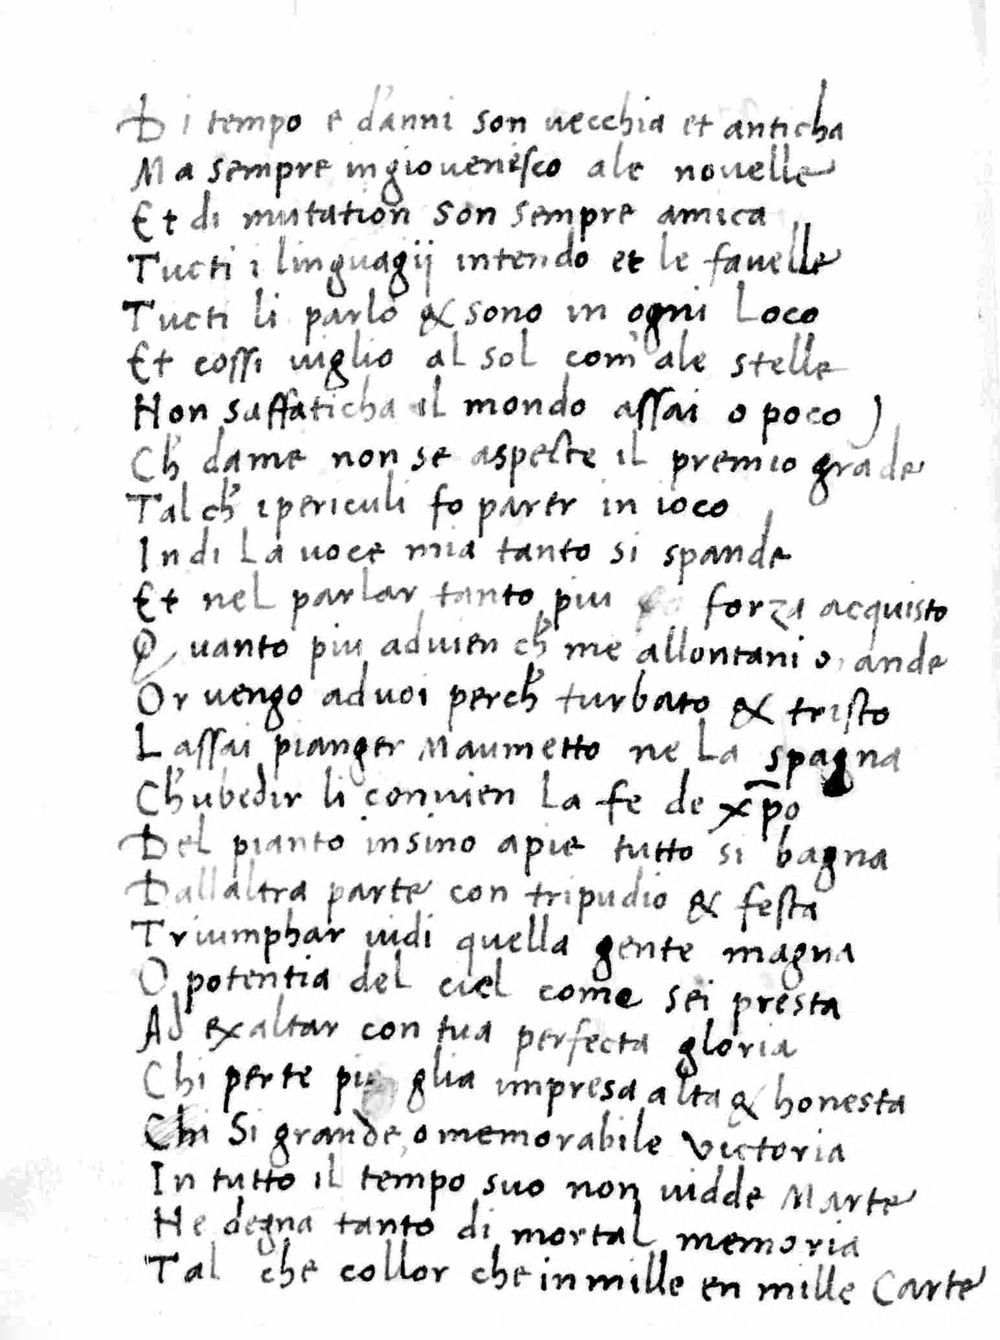 Di tempo e d'anni son vecchia et anticha
Ma sempre ingiovenesco ale novelle
Et di mutation son sempre amica
Tucti i linguagij intendo et le favelle
Tucti li parlo & sono in ogni Loco
Et cossi viglio al sol com' ale stelle
Non saffaticha il mondo assai o poco )
Ch' dame non se aspecte il premio grade
Tal ch' i periculi fo parer in ioco
Indi La voce mia tanto si spande
Et nel parlar tanto piu forza acquisto
Quanto piu advien ch' me allontani o ande
Or vengo ad voi perch' turbato & tristo
Lassai pianger Maumetto ne La spagna
Ch'ubedir li convien La fe de xp̄o
Del pianto insino a pie tutto si bagna
Dallaltra parte con tripudio & festa
Triumphar vidi quella gente magna
O potentia del ciel come sei presta
Ad exaltar con tua perfecta gloria
Chi per te piglia impresa alta & honesta
Chi Si grande o memorabile Victoria
In tutto il tempo suo non vidde Marte
Ne degna tanto di mortal memoria
Tal che collor che in mille en mille Carte